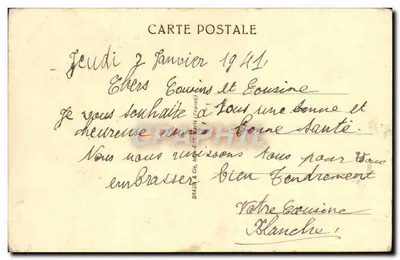 CARTE POSTALE
Jeudi 2 Janvier 1941
Chers Cousins et Cousine
Je vous souhaite à tous une bonne et
heureuse année Bonne Santé.
Nous nous unissons tous pour vous
embrasser bien tendrement
Votre Cousine
Blanche